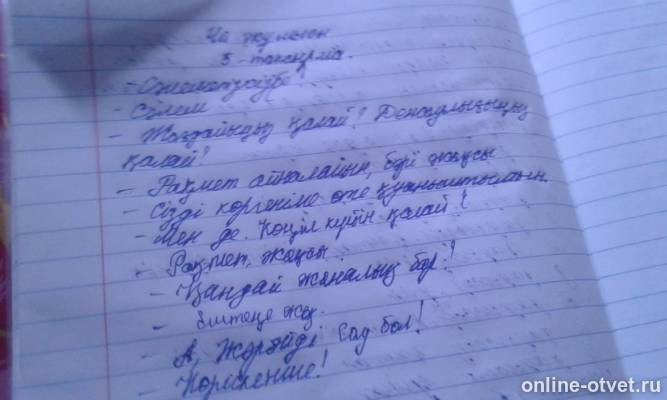 Үй жұмысы
5-тапсырма.
- Сәлеметсіз бе
- Сәлем
- Жағдайыңыз қалай? Денсаулығыңыз
қалай?
- Рақмет айналайын, бәрі жақсы
- Сізді көргеніме өте қуаныштымын
- Мен де. Көңіл күйің қалай?
- Рақмет, жақсы
- Қандай жаңалық бар?
- Ештеңе жоқ.
- А, Жарайді Сау бол!
- Көріскенше!
online-otvet.ru